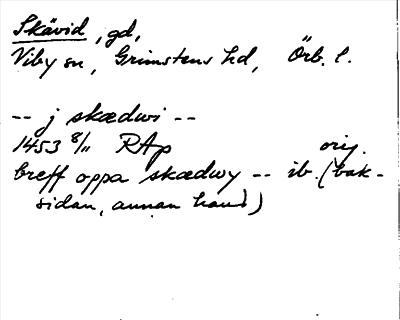 Skävid, gd,
Viby sn, Grimstens hd, Örb. l.
-- j skædwi --
1453 8/11 RAp orig.
breff oppa skædwy -- ib. (bak-
sidan, annan hand)